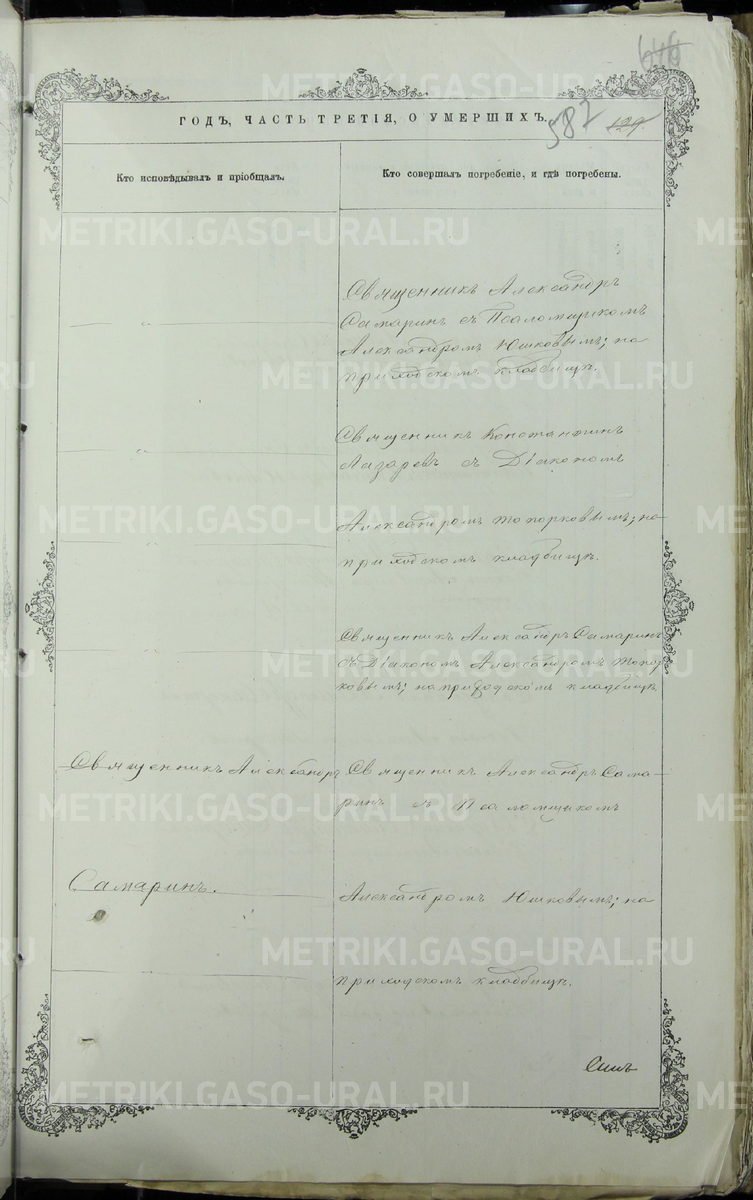 646
ГОДЪ, ЧАСТЬ ТРЕТІЯ, О УМЕРШИХЪ.
582
129.
Кто исповѣдывалъ и пріобщалъ.
Кто совершалъ погребеніе, и гдѣ погребены.
Священникъ Александръ
Самаринъ съ Псаломщикомъ
Александромъ Юшковымъ; на
приходскомъ кладбищѣ.
Священникъ Константинъ
Лазаревъ съ Діакономъ
Александромъ Топорковымъ; на
приходскомъ кладбищѣ.
Священникъ Александръ Самаринъ
съ Діакономъ Александромъ Топор
ковымъ; на приходскомъ кладбищѣ
Священникъ Александръ
Самаринъ.
Священникъ Александръ Сама-
ринъ съ Псаломщикомъ
Александромъ Юшковымъ; на
приходскомъ кладбищѣ.
METRIKI.GASO-URAL.RU